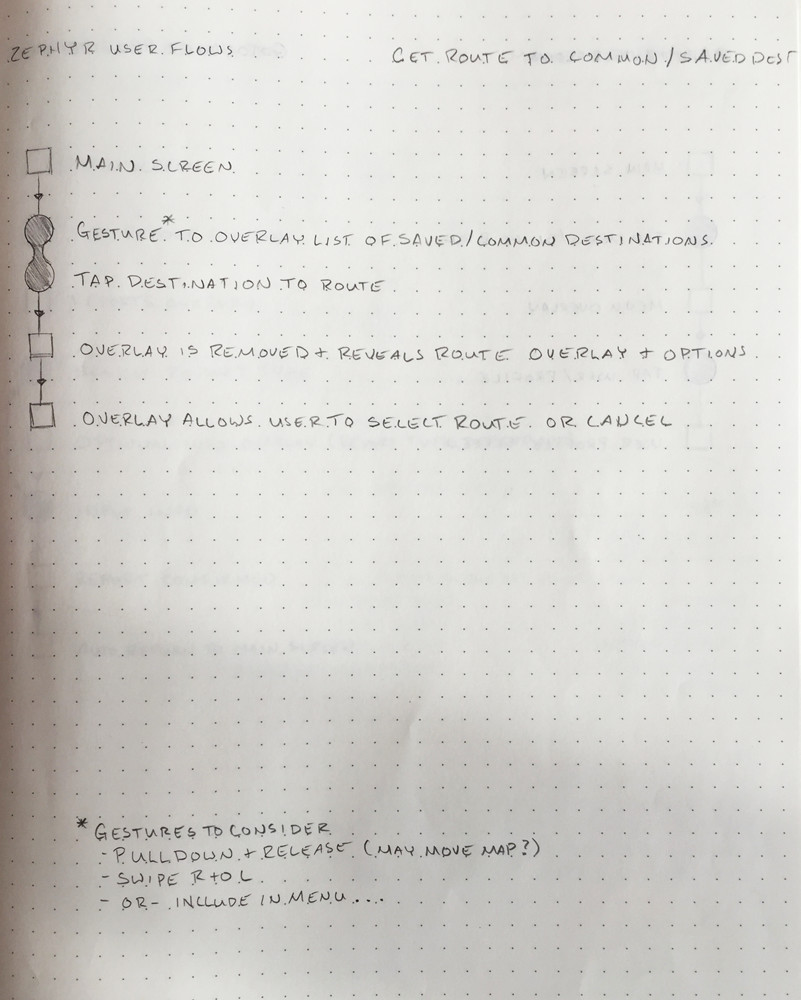 ZEPHYR USER FLOWS
GET ROUTE TO COMMON/SAVED DEST
MAIN SCREEN
GESTURE* TO OVERLAY LIST OF SAVED/COMMON DESTINATIONS.
TAP DESTINATION TO ROUTE
OVERLAY IS REMOVED + REVEALS ROUTE OVERLAY + OPTIONS
OVERLAY ALLOWS USER TO SELECT ROUTE OR CANCEL
* GESTURES TO CONSIDER
- PULL DOWN + RELEASE (MAY MOVE MAP?)
- SWIPE R to L
- OR - INCLUDE IN MENU....